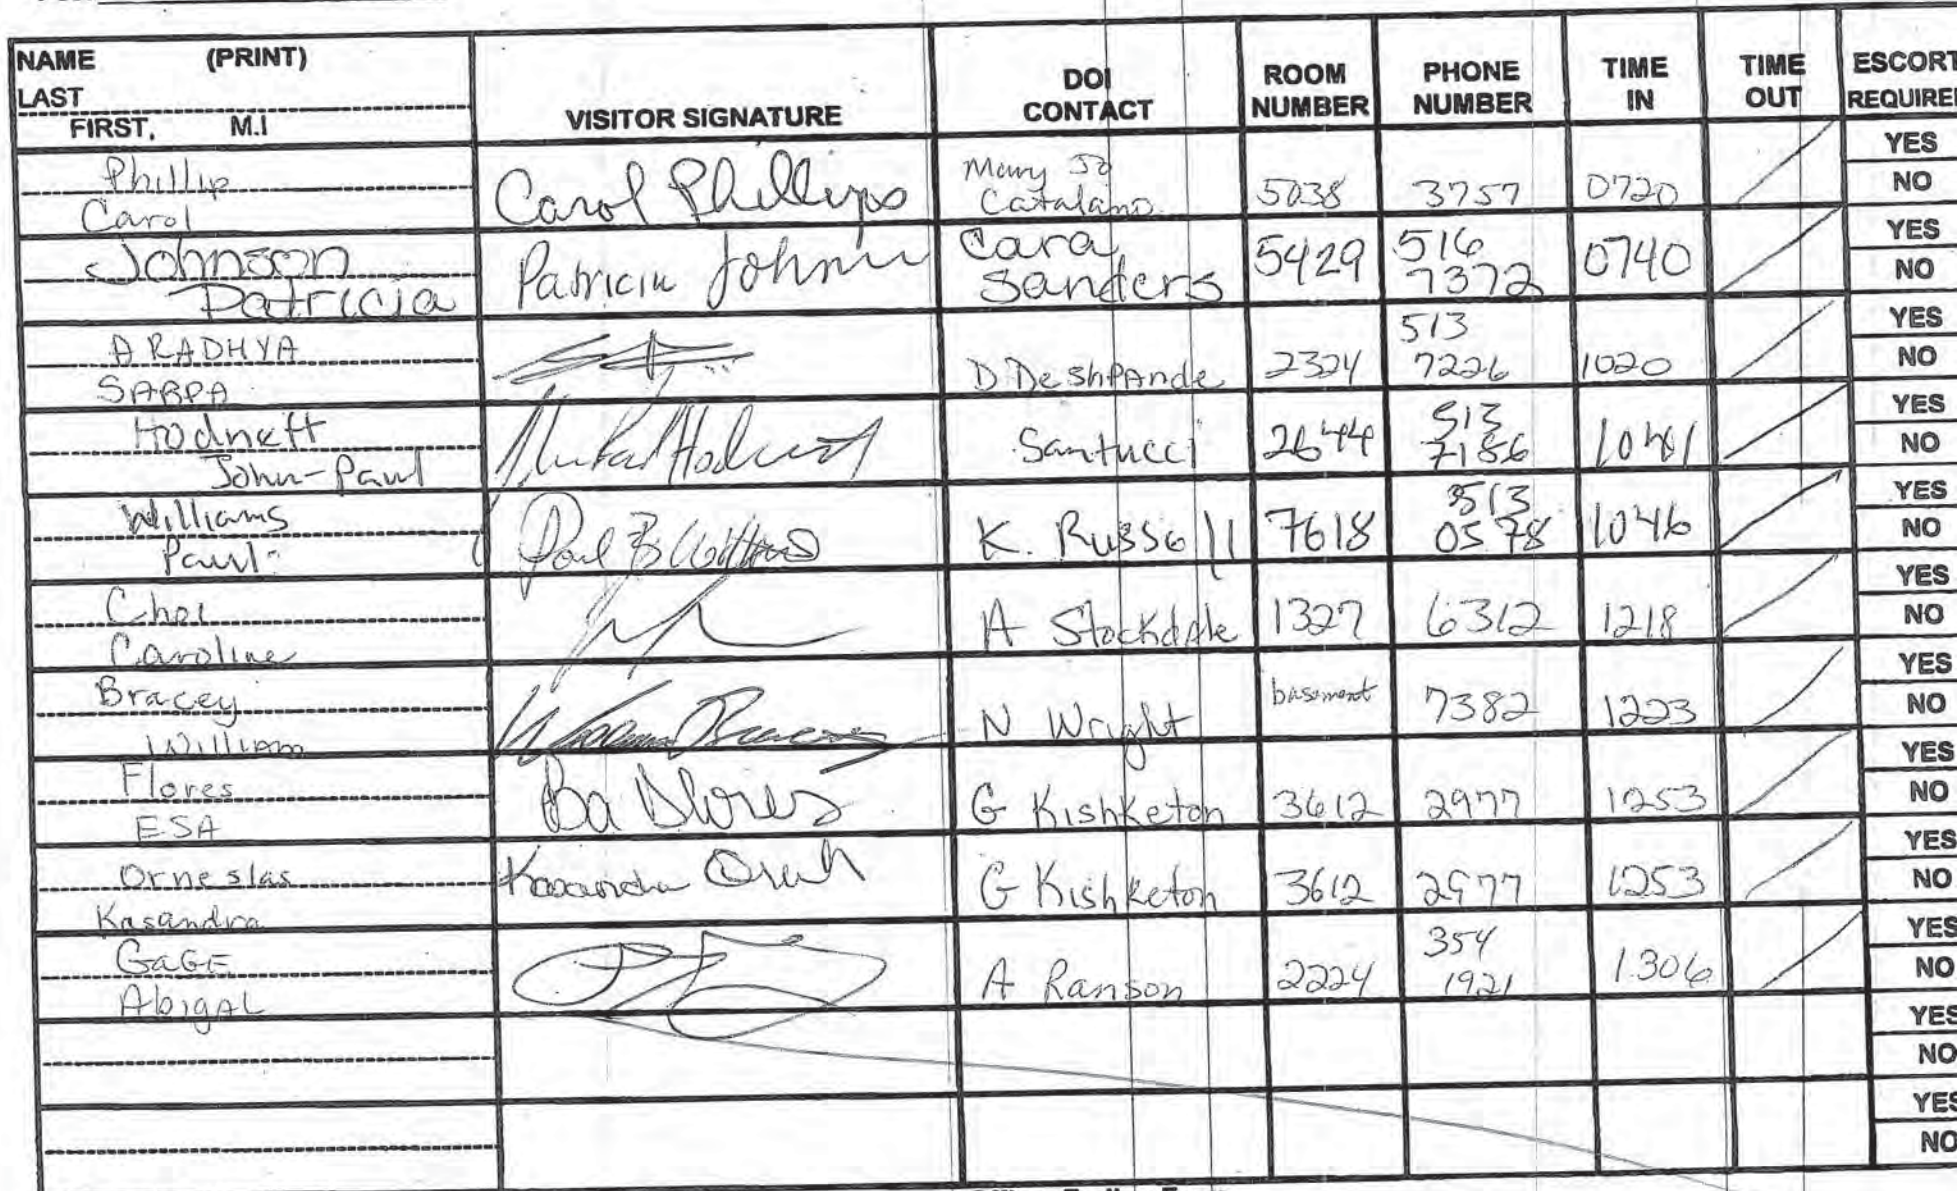 NAME (PRINT)
LAST
FIRST, M.I
VISITOR SIGNATURE
DOI
CONTACT
ROOM
NUMBER
PHONE
NUMBER
TIME
IN
TIME
OUT
ESCORT
REQUIRED
Phillip
Carol
Carol Phillips
Mary Jo
Catalano
5038
3757
0720
YES
NO
Johnson
Patricia
Patricia Johnson
Cara
Sanders
5429
516
7372
0740
YES
NO
ARADHYA
SARPA
D Deshpande
2324
513
7226
1020
YES
NO
Hodnett
John-Paul
Santucci
2644
513
7186
1041
YES
NO
Williams
Paul
Paul B Williams
K. Russell
7618
513
0578
1046
YES
NO
Choi
Caroline
A Stockdale
1327
6312
1218
YES
NO
Bracey
William
William Bracey
N Wright
basement
7382
1223
YES
NO
Flores
ESA
G Kishketon
3612
2977
1253
YES
NO
Orneslas
Kasandra
Kasandra
G Kishketon
3612
2977
1253
YES
NO
GaGE
AbigAL
A Ranson
2224
354
1921
1306
YES
NO
YES
NO
YES
NO